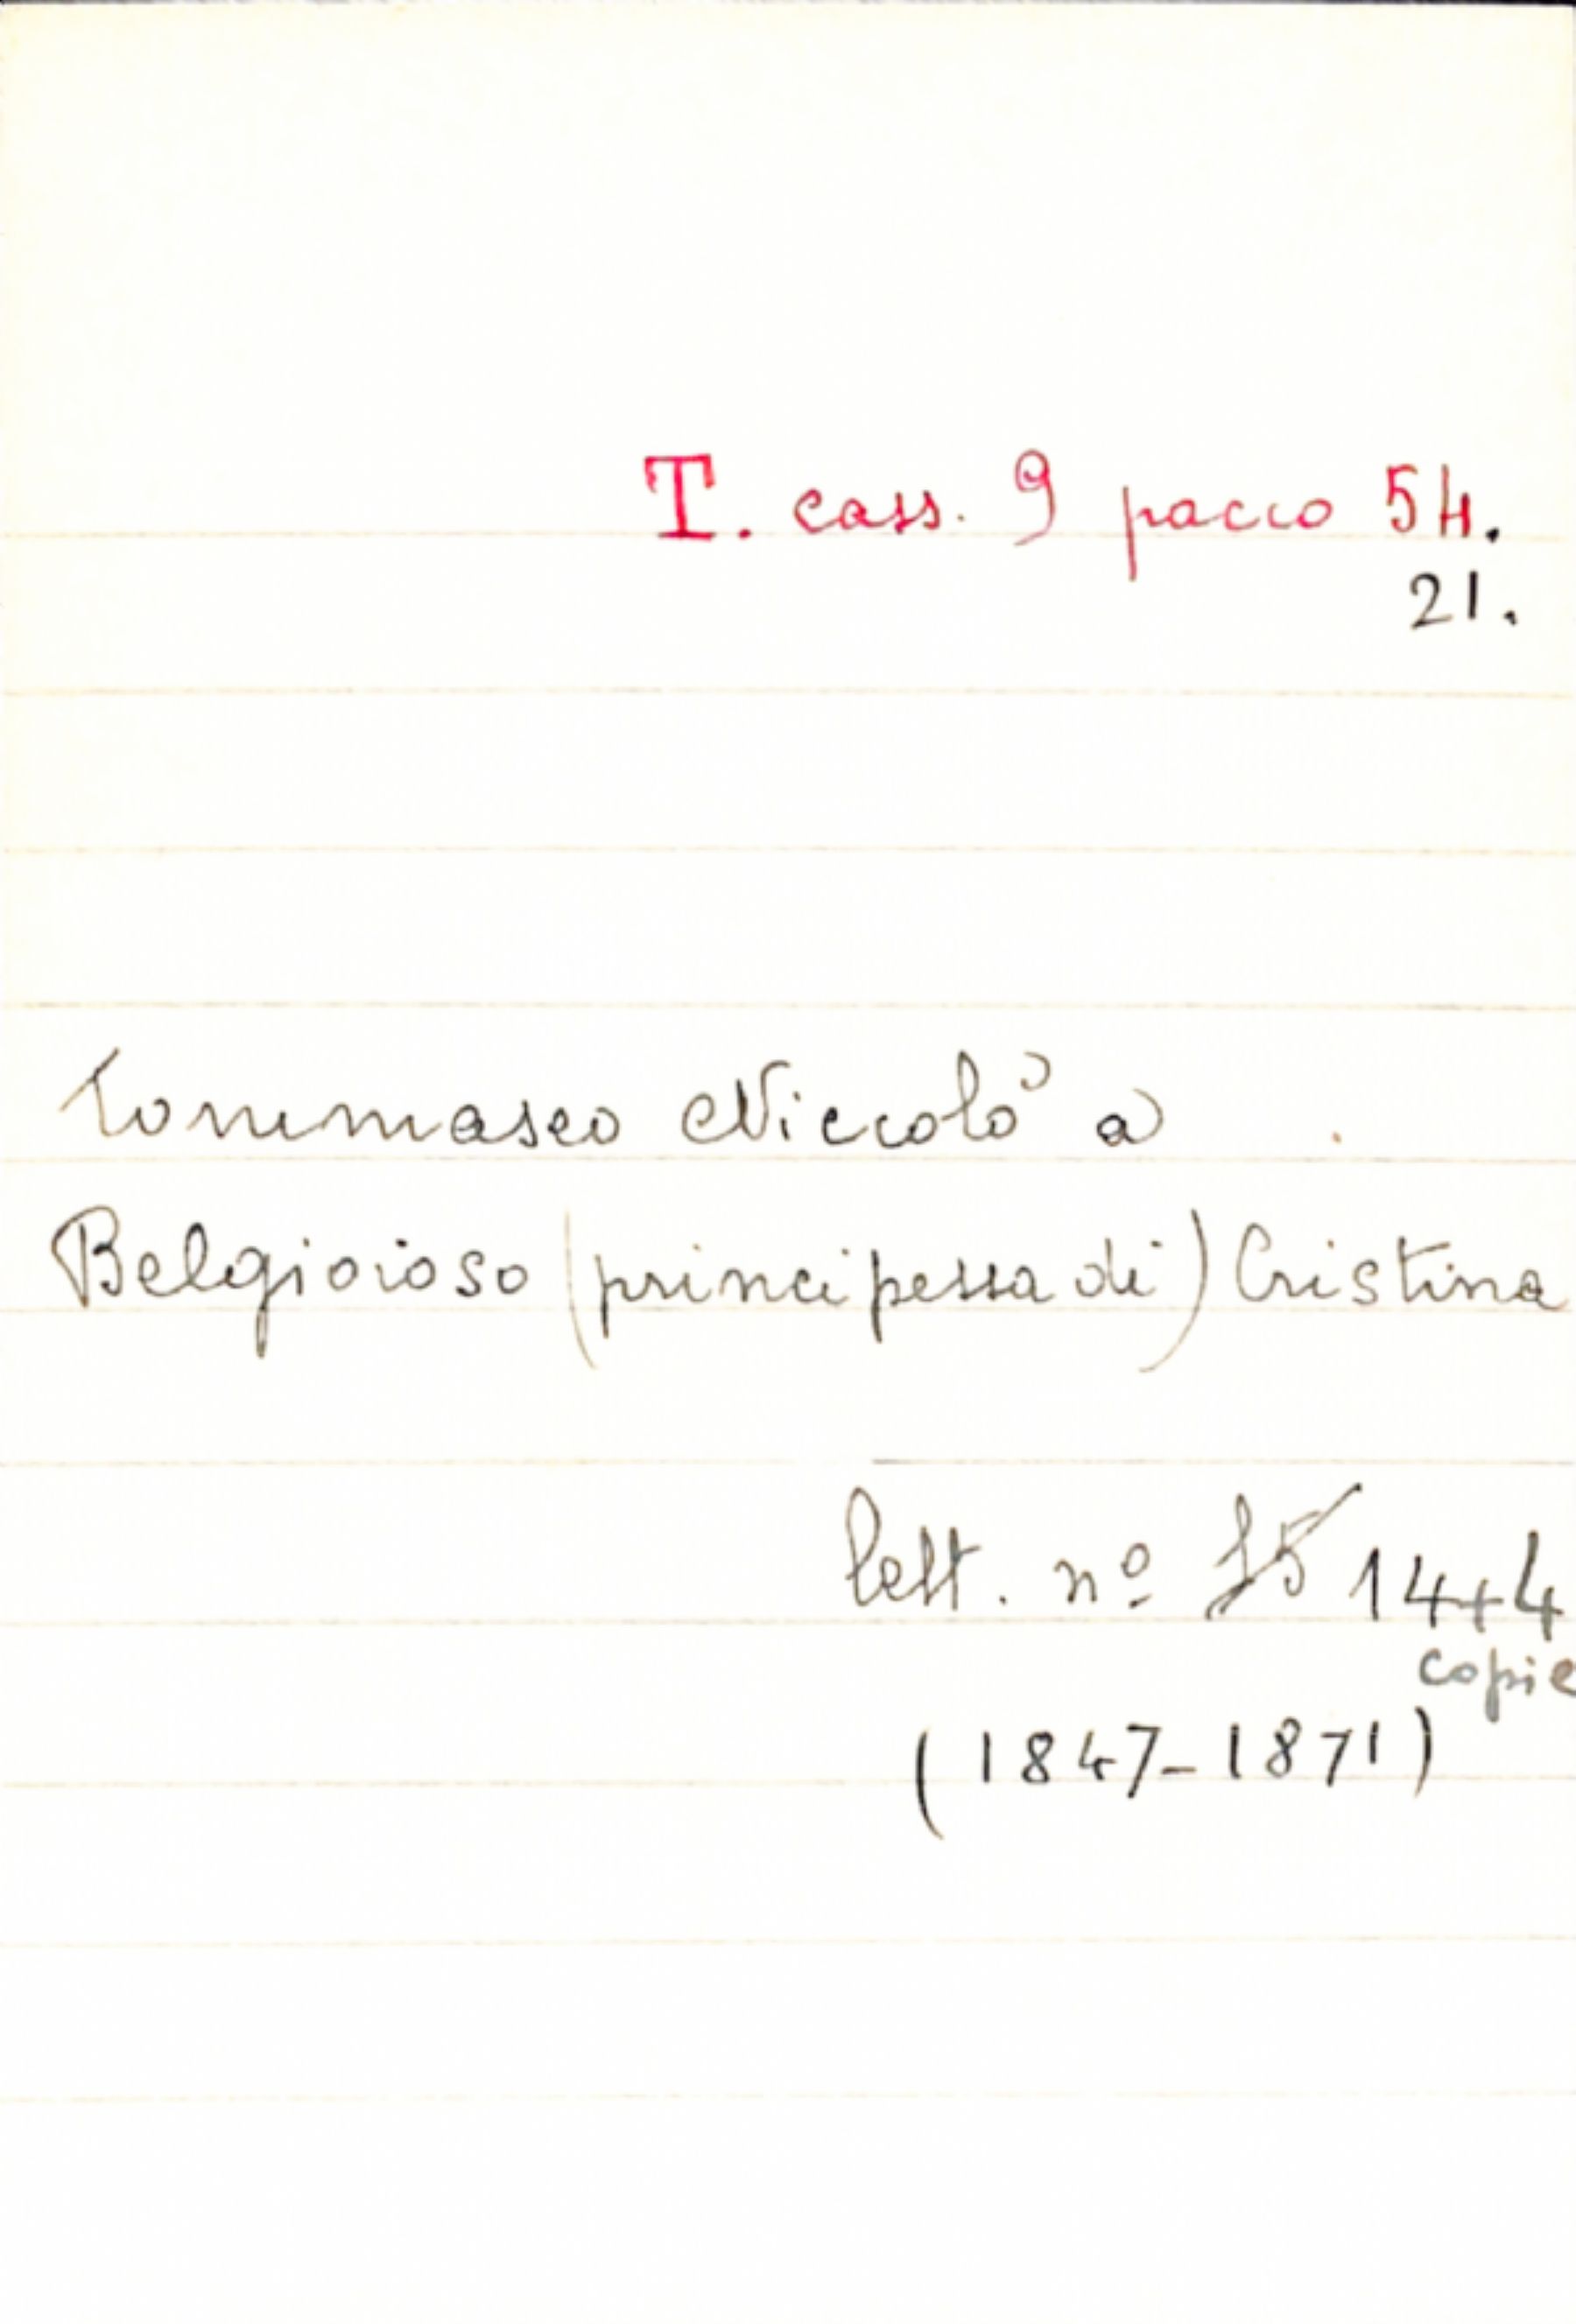 T. cass. 9 pacco 54.
21.
Tommaseo Niccolò a
Belgioioso (principessa di) Cristina
lett. nº 15 14+4
copie
(1847-1871)